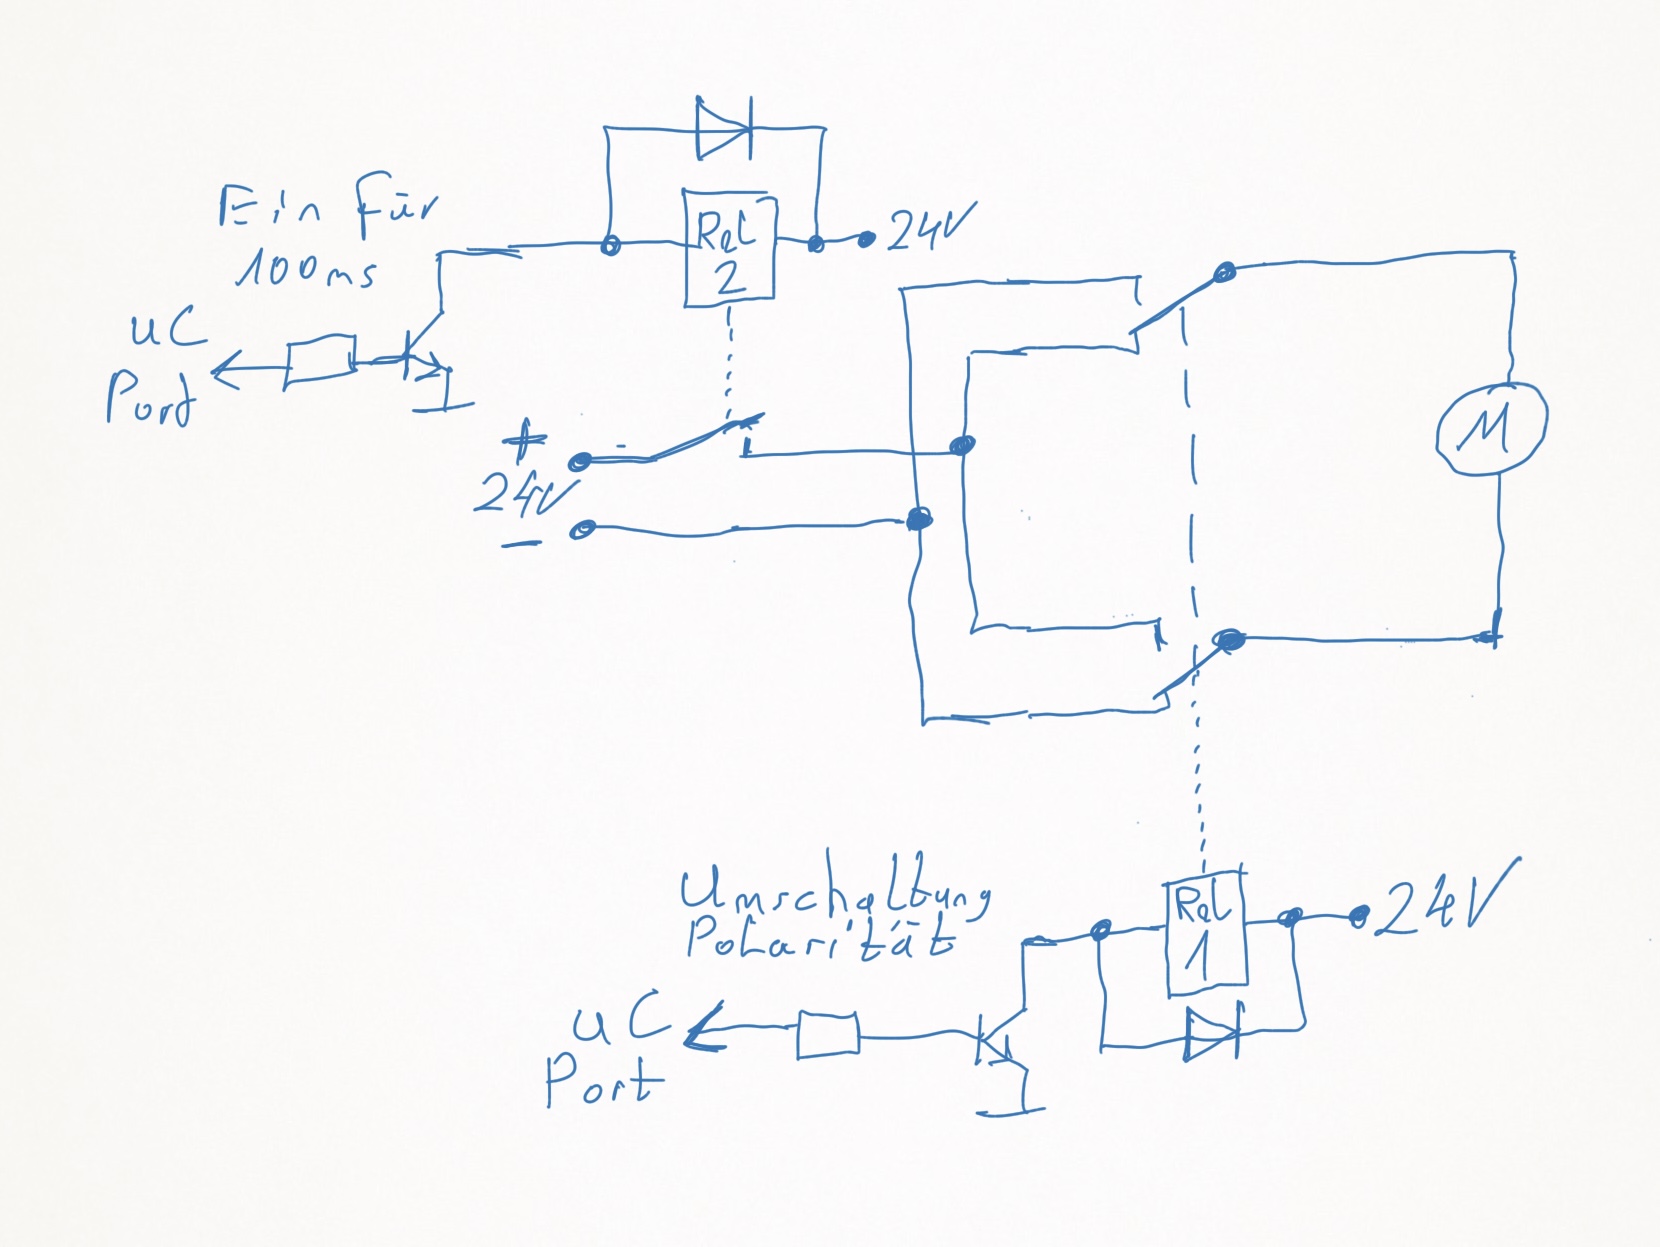 Ein für
100ms
uC
Port
Rel
2
24V
+
24V
−
M
Umschaltung
Polarität
uC
Port
Rel
1
24V